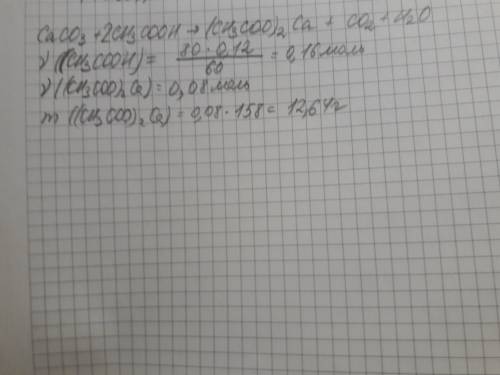 CaCO₃ + 2CH₃COOH → (CH₃COO)₂Ca + CO₂ + H₂O
ν(CH₃COOH) = 80 · 0,12 / 60 = 0,16 моль
ν(CH₃COO)₂Ca) = 0,08 моль
m((CH₃COO)₂Ca) = 0,08 · 158 = 12,64г